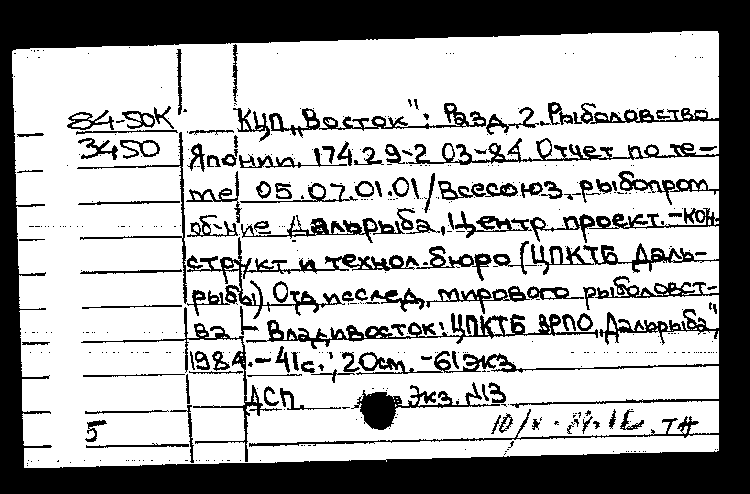 84-50К КЦП „Восток": Разд. 2. Рыболовство
3450 Японии. 174.29-2 03-84. Отчет по те-
ме 05.07.01.01/Всесоюз. рыбопром.
об-ние Дальрыба, Центр. проект.-кон-
структ. и технол. бюро (ЦПКТБ Даль-
рыбы), Отд. исслед. мирового рыболовст-
ва - Владивосток: ЦПКТБ ВРПО „Дальрыба",
1984. - 41с.; 20см. - 61экз.
ДСП. Экз. №13
5 10/X-84г. ТН